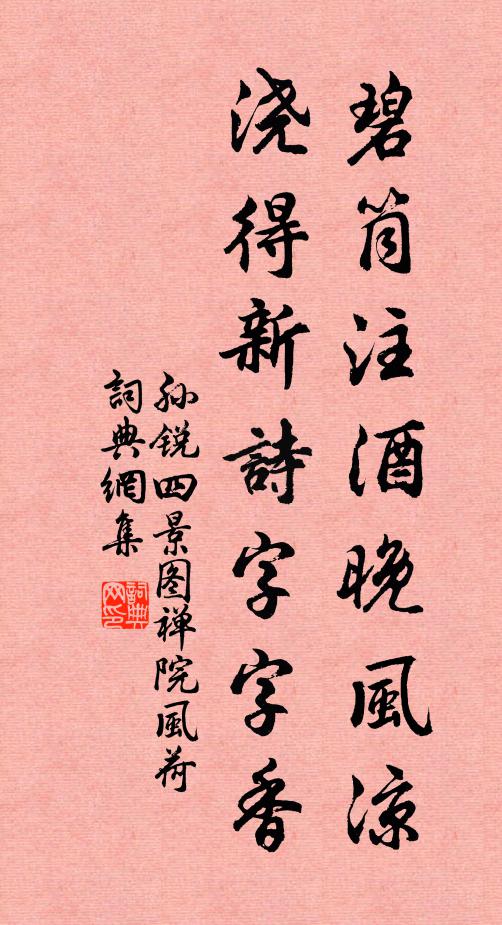 碧筒注酒晚風凉
浇得新詩字字香
孙锐四景图禅院風荷
詞典網集
詞典网印